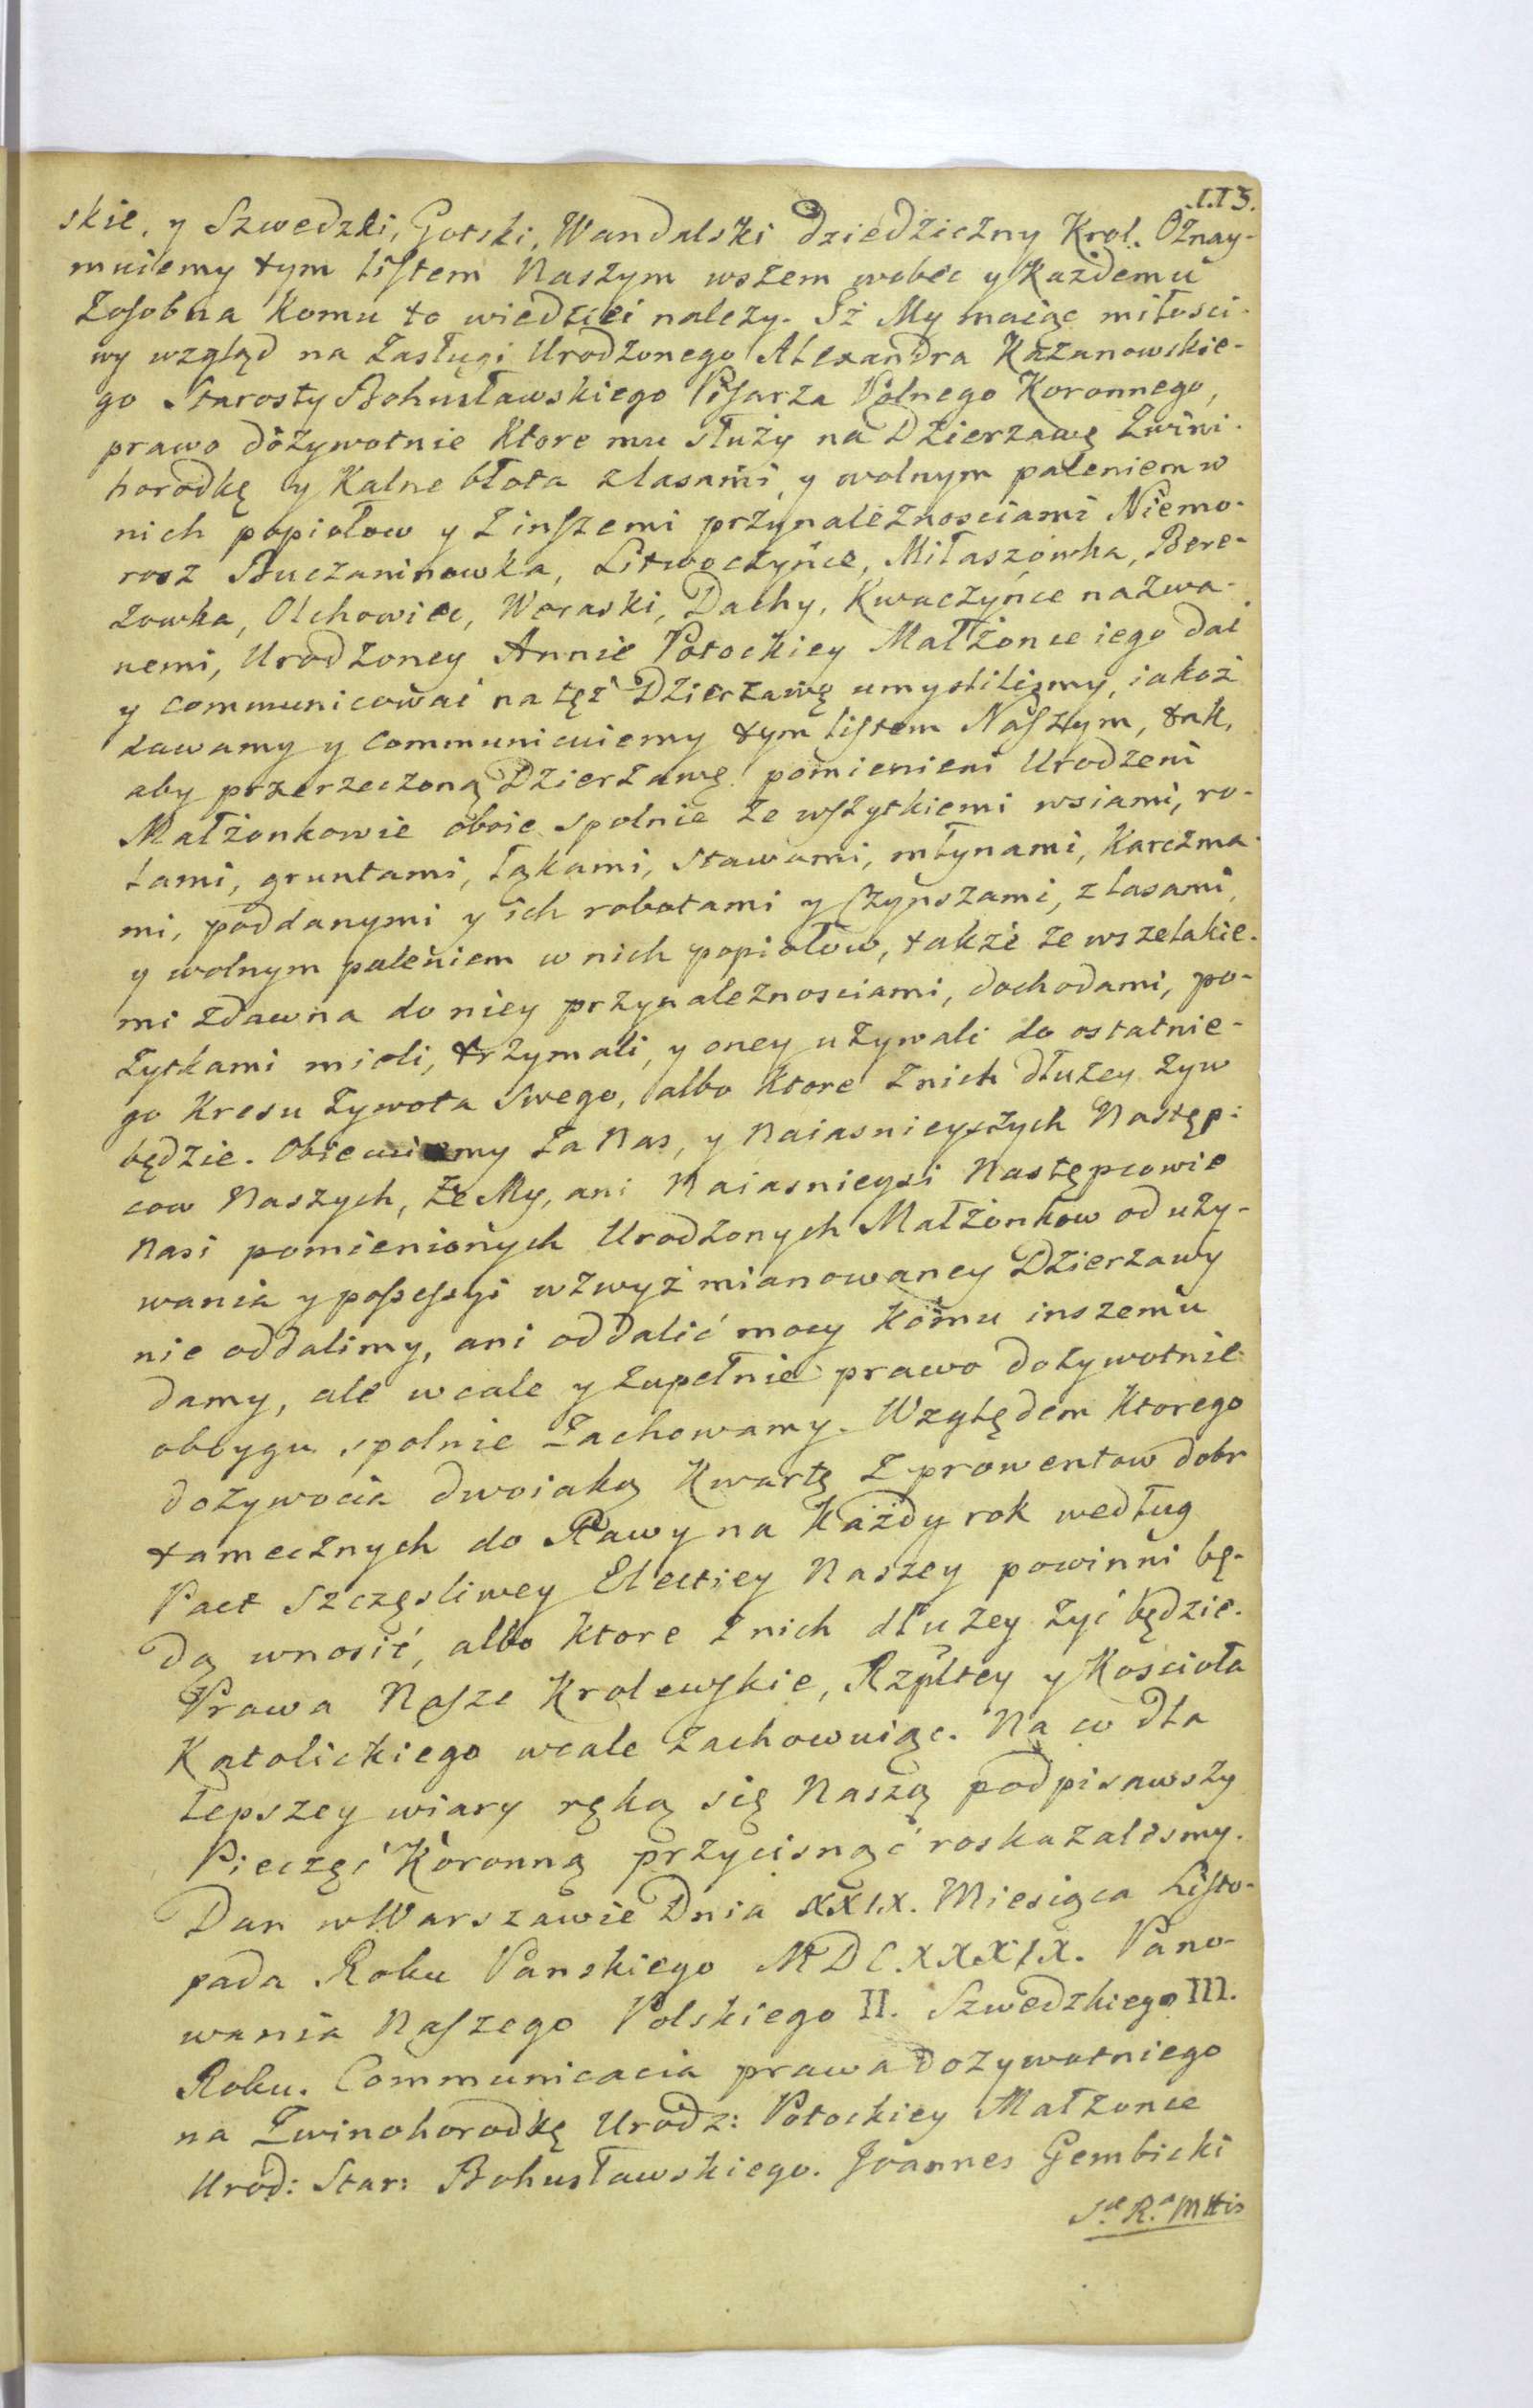 113.
skie, y Szwedzki, Gotski, Wandalski dziedziczny Krol. Oznay-
muiemy tym listem Naszym wszem wobec y Kazdemu
zosobna Komu to wiedziei nalezy. Iż My maiąc miłości-
wy wzgląd na zasługi Urodzonego Alexandra Kazanowskie-
go Starosty Bohusławskiego Pisarza Polnego Koronnego,
prawo dożywotnie Ktore mu służy na Dzierzawę Zwini-
horodkę y Kalne błota z lasami y wolnym paleniem w
nich popiołow y z inszemi przynależnosciami Niemo-
rosz Buczaninowka, Litwoczyńce, Miłaszówka, Bere-
zowka, Olchowiec, Woraski, Dachy, Kwaczyńce nazwa-
nemi, Urodzoney Annie Potockiey Małżonce iego dać
y communicować na tęż Dzierzawę umyslilismy, iakoż
dawamy y communicuiemy tym listem Naszym, tak,
aby przerzeczoną Dzierzawę pomienieni Urodzeni
Małżonkowie oboie spolnie ze wszytkiemi wsiami, ro-
lami, gruntami, łąkami, stawami, młynami, Karczma-
mi, poddanymi y ich robotami y czynszami, z lasami,
y wolnym paleniem w nich popiołow, także ze wszelakie-
mi zdawna do niey przynaleznosciami, dochodami, po-
żytkami mieli, trzymali, y oney używali do ostatnie-
go Kresu żywota swego, albo Ktore z nich dłużey żyw
będzie. Obiecuiemy za Nas, y Naiasnieyszych Następ-
cow Naszych, że My, ani Naiasnieysi Następcowie
Nasi pomienionych Urodzonych Małżonkow od uży-
wania y possessyi wzwyż mianowaney Dzierzawy
nie oddalimy, ani oddalić mocy Komu inszemu
damy, ale wcale y zupełnie prawo dożywotnie
oboygu spolnie zachowamy. Względem Ktorego
dożywocia dwoiaką Kwartę z prowentow dobr
tamecznych do Rawy na Każdy rok według
Pact szczęsliwey Electiey Naszey powinni bę-
dą wnosić, albo Ktore z nich dłużey żyć będzie.
Prawa Nasze Krolewskie, Rzpltey y Kościoła
Katolickiego wcale zachowuiąc. Na co dla
lepszey wiary ręką się Naszą podpisawszy
Pieczęć Koronną przycisnąć roskazalismy.
Dan w Warszawie Dnia XXIX. Miesiąca Listo-
pada Roku Panskiego MDCXXXIX. Pano-
wania Naszego Polskiego II. Szwedzkiego III.
Roku. Communicacia prawa dożywotniego
na Zwinohorodkę Urodz: Potockiey Małżonce
Urod: Star: Bohusławskiego. Joannes Gembicki
S.ae R.a Mttis